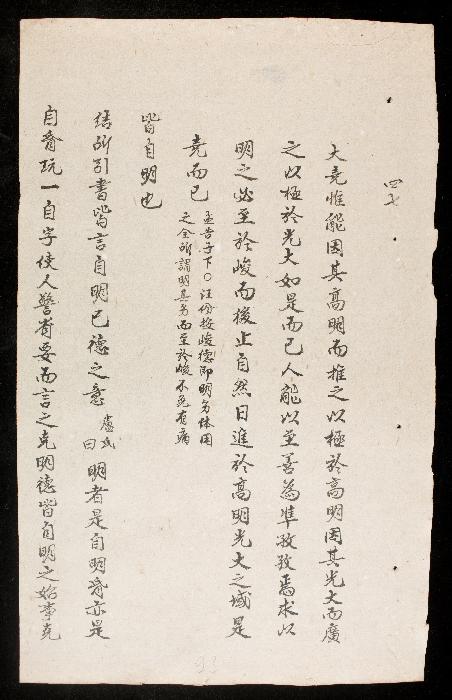 四七
大堯惟能因其高明而推之以極於高明因其光大而廣
之以極於光大如是而已人能以至善為準孜孜焉求以
明之必至於峻而後止自然日進於高明光大之域是
堯而已
孟告子下〇汪份按峻德即明為体用
之全所謂明其为而至於峻不免有病
皆自明也
結所引書皆言自明己德之意
盧氏
曰
明者是自明昏亦是
自昏玩一自字使人警省要而言之克明德皆自明之始事克
93